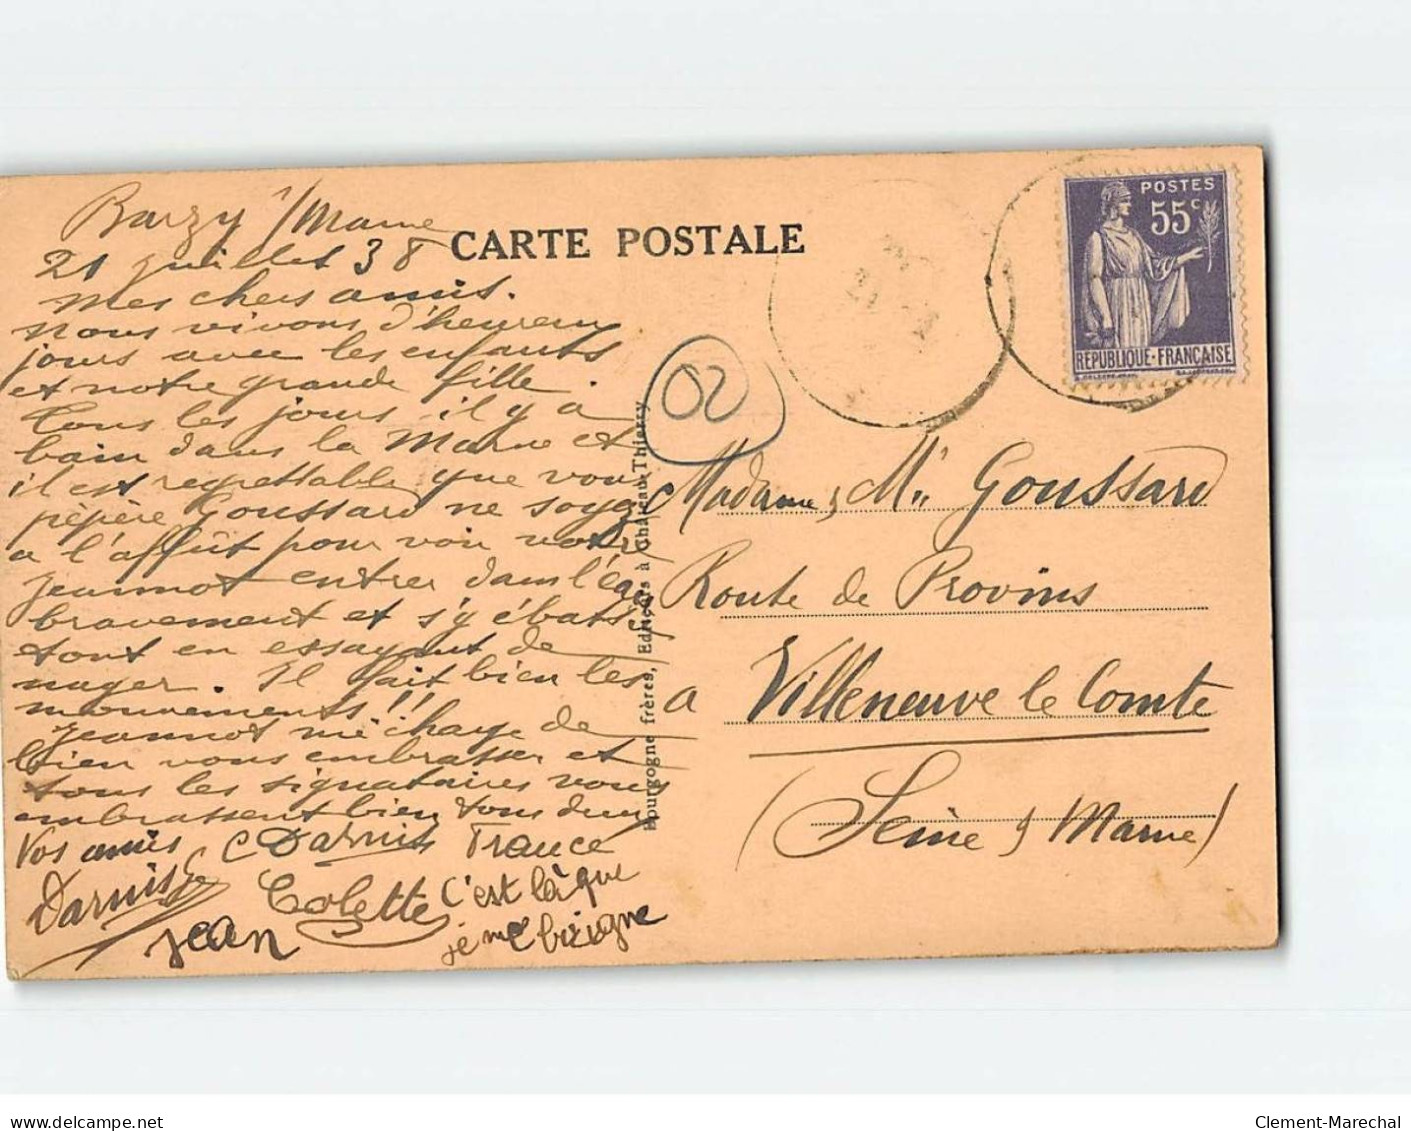 Barzy s/Marne
21 juillet 38
Mes chers amis.
Nous vivons d'heureux
jours avec les enfants
et notre grande fille.
Tous les jours il y a
bain dans la Marne et
il est regrettable que vous
pépère Goussard ne soyez
à l'affût pour voir votre
Jeannot entrer dans l'eau
bravement et s'y ébattre
tout en essayant de
nager. Il fait bien les
mouvements!!
Jeannot me charge de
bien vous embrasser et
tous les signataires vous
embrassent bien tous deux
Vos amis C Darnis France
Darnis
Jean
Colette
C'est là que
je me baigne
CARTE POSTALE
02
Bourgogne frères, Editeurs à Château-Thierry
POSTES
55c
REPUBLIQUE-FRANÇAISE
21
Madame, Mr Goussard
Route de Provins
à Villeneuve le Comte
(Seine & Marne)
Clement-Marechal